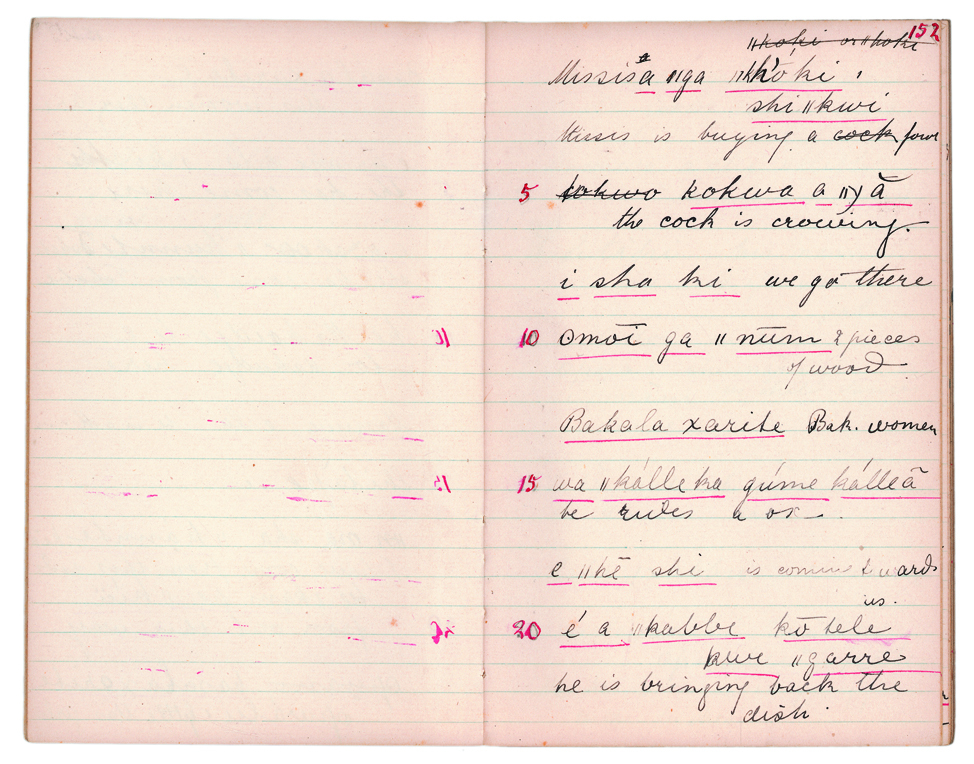 152
ǁkoki or ǁkoki
Missisa ǁga ǁkʼoki.
shi ǁkwi
Missis is buying a cock fowl
5 kokwo kokwa a ǁyā
the cock is crowing.
i sha ki we go there
10 omoi ga ǁnūm 2 pieces
of wood
Bakala xarite Bak. women
15 wa ǁkálleka gúme kálleā
he rides a ox.
e ǁkē shi is coming towards
us.
20 é a ǁkabbe kō tele
kwe ǁgarre
he is bringing back the
dish.